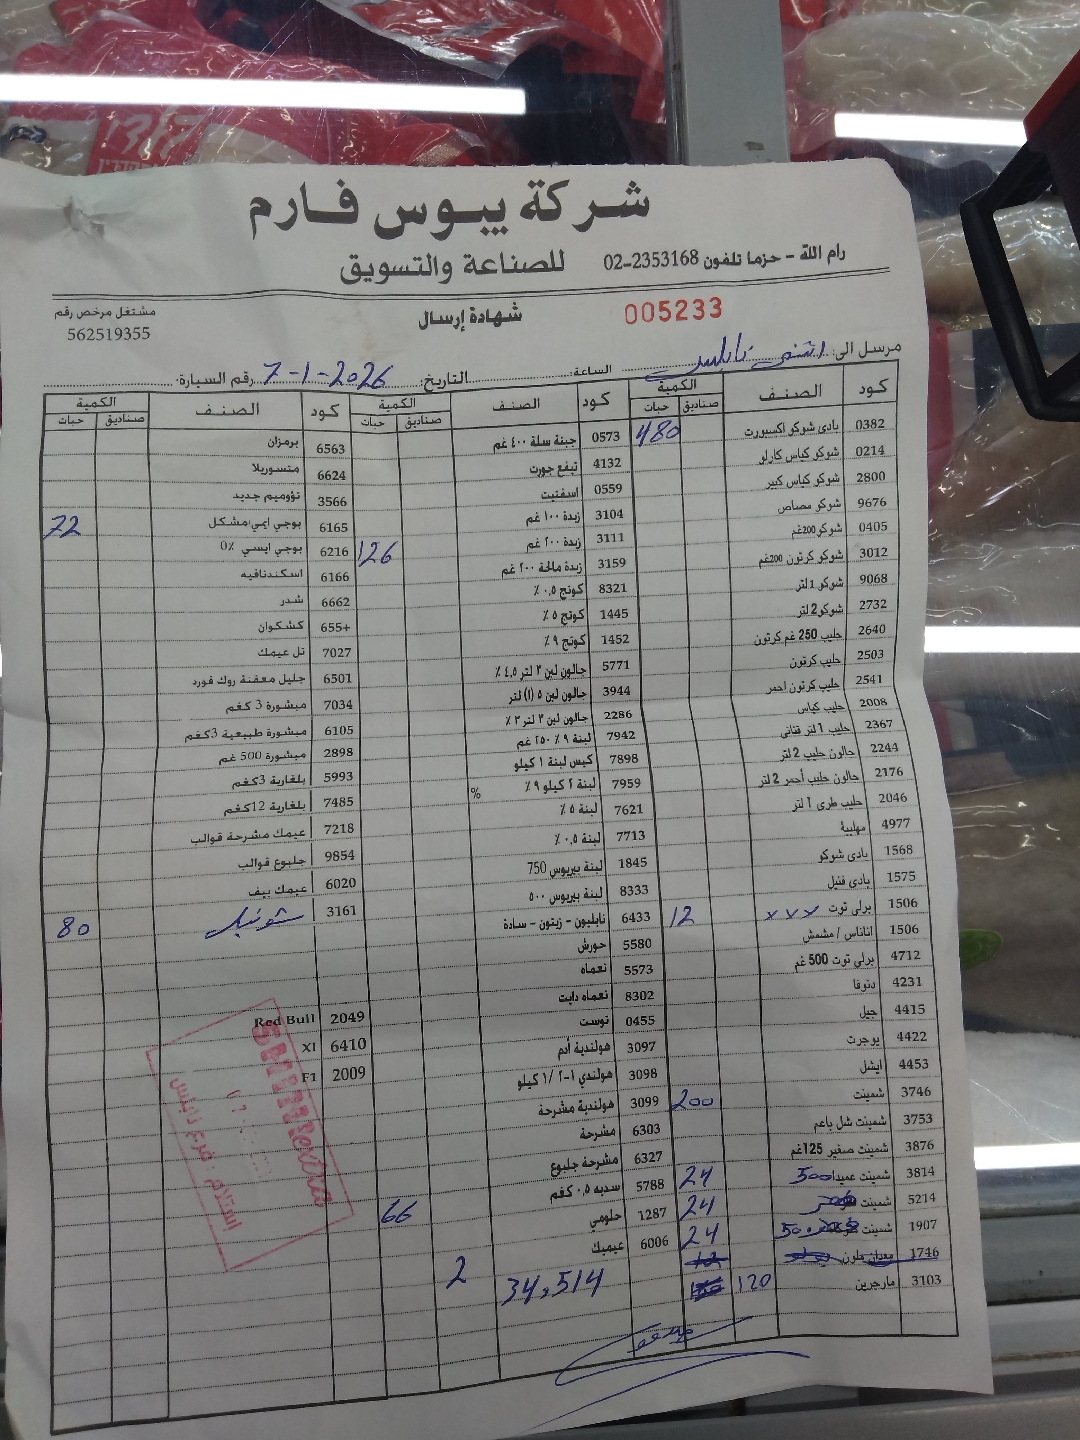 شركة بيوس فارم
رام الله - حزما تلفون 02-2353168
للصناعة والتسويق
مشتغل مرخص رقم
562519355
شهادة إرسال
005233
مرسل الى:
الساعة:
التاريخ:
7-1-2026
رقم السيارة:
كود الصنف الكمية صناديق حبات
0382 بادي شوكو اكسبورت 480
0214 شوكو كياس كارلو
2800 شوكو كياس كبير
9676 شوكو مصاص
0405 شوكو 200غم
3012 شوكو كرتون 200غم
9068 شوكو 1 لتر
2732 شوكو 2 لتر
2640 حليب 250 غم كرتون
2503 حليب كرتون
2541 حليب كرتون احمر
2008 حليب كياس
2367 حليب 1 لتر قناني
2244 جالون حليب 2 لتر
2176 جالون حليب أحمر 2 لتر
2046 حليب طري 1 لتر
4977 مهلبية
1568 بادي شوكو
1575 بادي فنيل
1506 برلي توت xxx 12
1506 اناناس / مشمش
4712 برلي توت 500 غم
4231 دنوفا
4415 جيل
4422 يوجرت
4453 ايشل
3746 شمينت 200
3753 شمينت شل باعم
3876 شمينت صغير 125غم
3814 شمينت عميدا 500 24
5214 شمينت 24
1907 شمينت 24
1746
3103 مارجرين 120
كود الصنف الكمية صناديق حبات
0573 جبنة سلة ٤٠٠ غم
4132 تيفع جورت
0559 اسفتيت
3104 زبدة ١٠٠ غم
3111 زبدة ٢٠٠ غم 126
3159 زبدة مالحة ٢٠٠ غم
8321 كوتج ٠,٥ ٪
1445 كوتج ٥ ٪
1452 كوتج ٩ ٪
5771 جالون لبن ٣ لتر ٤,٥ ٪
3944 جالون لبن ٥ (١) لتر
2286 جالون لبن ٣ لتر ٣ ٪
7942 لبنة ٩ ٪ ٢٥٠ غم
7898 كيس لبنة ١ كيلو
7959 لبنة ٢ كيلو ٩ ٪ %
7621 لبنة ٥ ٪
7713 لبنة ٠,٥ ٪
1845 لبنة بيريوس 750
8333 لبنة بيريوس ٥٠٠
6433 نابليون - زيتون - سادة
5580 حورش
5573 نعماه
8302 نعماه دايت
0455 توست
3097 هولندية أدم
3098 هولندي ١-٢ /١ كيلو
3099 هولندية مشرحة
6303 مشرحة
6327 مشرحة جلبوع
5788 سدبه ٠,٥ كغم
1287 حلومي 66
6006 عيميك
34,514
2
كود الصنف الكمية صناديق حبات
6563 برمزان
6624 متسوريلا
3566 نؤوميم جديد
6165 بوجي ايمي/مشكل 72
6216 بوجي ايسي ٪0
6166 اسكندنافيه
6662 شدر
655+ كشكوان
7027 تل عيمك
6501 جليل معفنة روك فورد
7034 مبشورة 3 كغم
6105 مبشورة طبيعية 3كغم
2898 مبشورة 500 غم
5993 بلغارية 3كغم
7485 بلغارية 12كغم
7218 عيمك مشرحة قوالب
9854 جلبوع قوالب
6020 عيمك بيف
3161 80
2049 Red Bull
6410 Xl
2009 F1
استلام: فرع نابلس